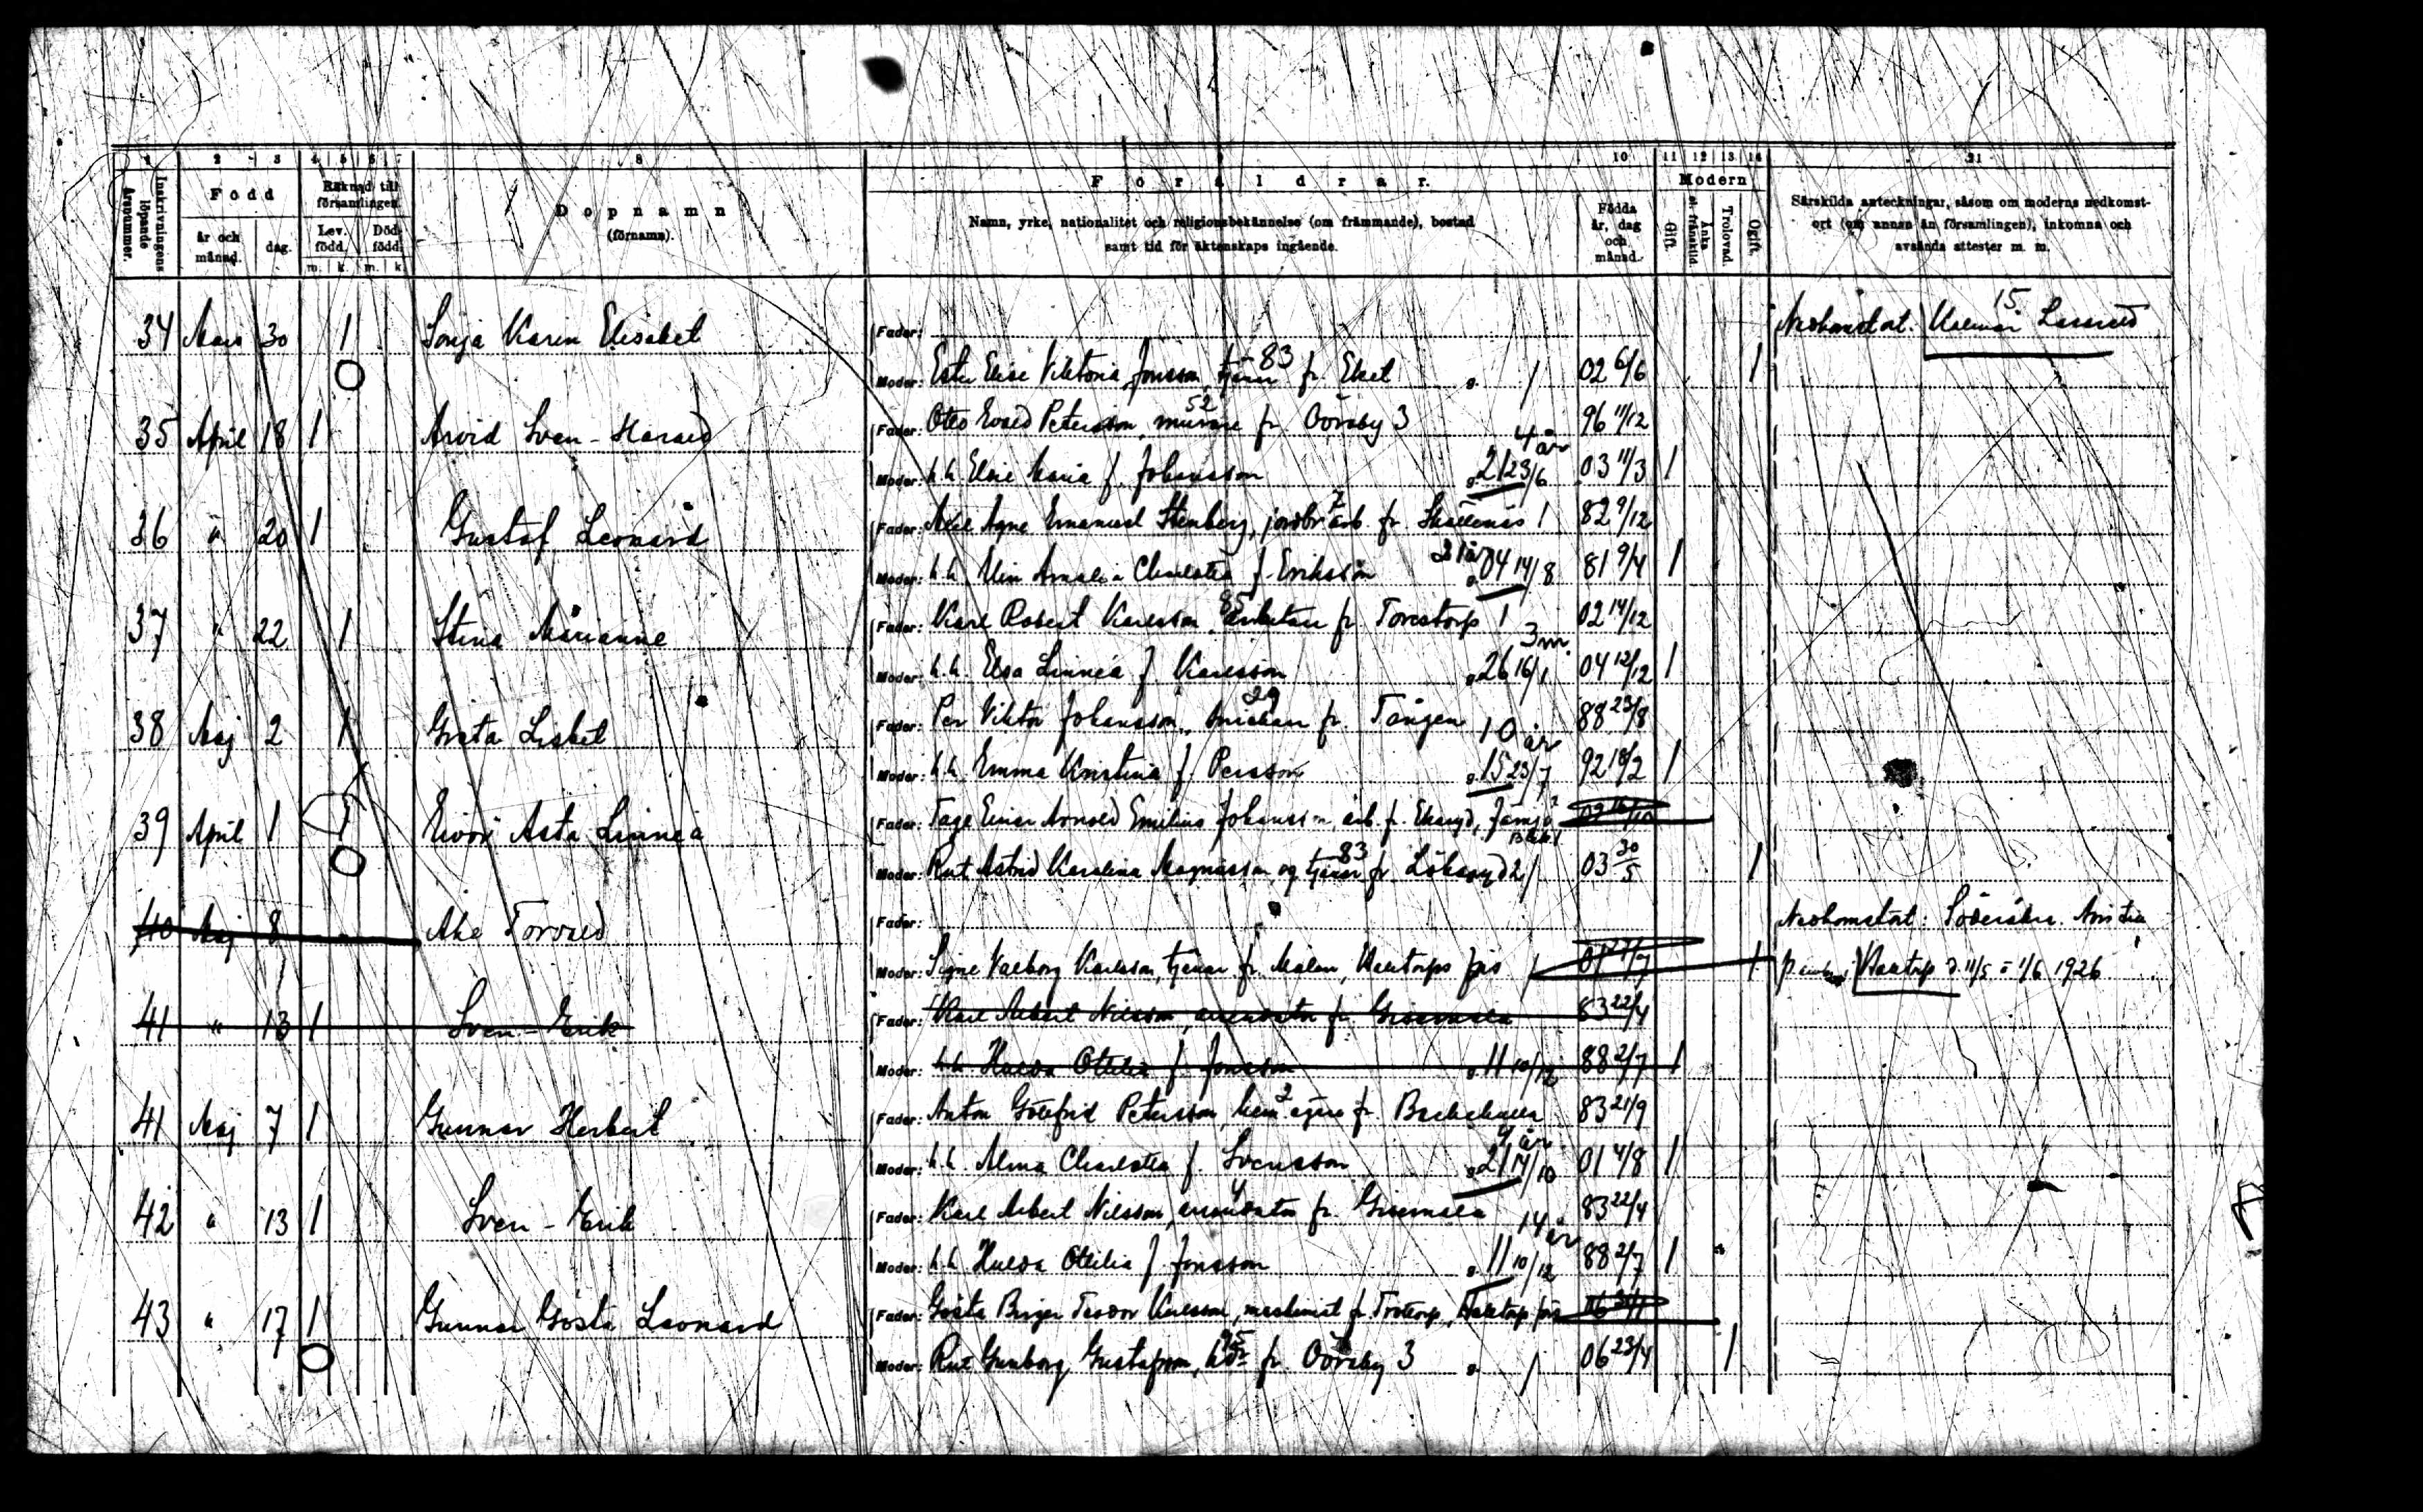 1 2 3 4 5 6 7 8 9 10 11 12 13 14 21
Inskrivningens löpande årsnummer.
Född
år och månad.
dag.
Räknad till församlingen.
Lev. född.
Död född.
m. k. m. k.
Dopnamn
(förnamn).
Föräldrar.
Namn, yrke, nationalitet och religionsbekännelse (om främmande), bostad
samt tid för äktenskaps ingående.
Födda år, dag och månad.
Modern
Gift.
Änka el. frånskild.
Trolovad.
Ogift.
Särskilda anteckningar, såsom om moderns nedkomst-
ort (om annan än församlingen), inkomna och
avsända attester m. m.
34 Mars 30 1 Sonja Karin Elisabet Fader: Nedkomstort. Kalmar Lasarett 15
Moder: Ester Elise Viktoria Jonsson, tjänar fr. Eket 83 g. / 02 6/6 1
35 April 18 1 Arvid Sven-Harald Fader: Otto Evald Petersson, murare fr. Oövaby 3 52 96 11/12
Moder: h.h. Elsie Maria f. Johansson 4 år g. 21 23/6 03 11/3 1
36 " 20 1 Gustaf Leonard Fader: Axel Agne Emanuel Stenberg, jordbr. arb. fr. 1 82 9/12
Moder: h.h. Elin Amalia Charlotta f. Eriksson 21 år g. 04 14/8 81 9/4 1
37 " 22 1 Stina Marianne Fader: Karl Robert Karlsson, arbetare fr. Torestorp 1 85 02 14/12
Moder: h.h. Elsa Linnéa f. Karlsson 3 m. g. 26 16/1 04 12/12 1
38 Maj 2 1 Greta Lisbet Fader: Per Viktor Johansson, fr. Tången 29 88 23/8
Moder: h.h. Emma Kristina f. Persson 10 år g. 15 23/7 92 18/2 1
39 April 1 1 Eivor Asta Linnéa Fader: Tage Einar Arnold Emilius Johansson, arb. fr. Ekaryd, Jämjö
Moder: Rut Astrid Karolina Magnusson, og. tjänar fr. 2 83 / 03 30/5 1
40 Maj 8 Åke Torvald Fader: Nedkomstort: Söderåkra.
Moder: Signe Valborg Karlsson, tjänar fr. Målen, Halltorps förs / 1 Halltorp d. 11/5 o 1/6 1926
41 " 13 1 Sven-Erik Fader: Karl Albert Nilsson, arrendator fr. 83 22/4
Moder: h.h. Hulda Ottilia f. Jonsson g. 11 10/12 88 2/7 1
41 Maj 7 1 Gunnar Herbert Fader: Anton Gottfrid Petersson, hem. ägare fr. 2 83 21/9
Moder: h.h. Alma Charlotta f. Svensson 4 år g. 21 14/10 01 4/8 1
42 " 13 1 Sven-Erik Fader: Karl Albert Nilsson, arrendator fr. 4 83 22/4
Moder: h.h. Hulda Ottilia f. Jonsson 14 år g. 11 10/12 88 2/7 1
43 " 17 1 Gunnar Gösta Leonard Fader: Gösta Birger Teodor Karlsson, maskinist fr. Halltorp förs
Moder: Rut Gunborg Gustafsson, fr. Oövaby 3 95 g. / 06 23/4 1